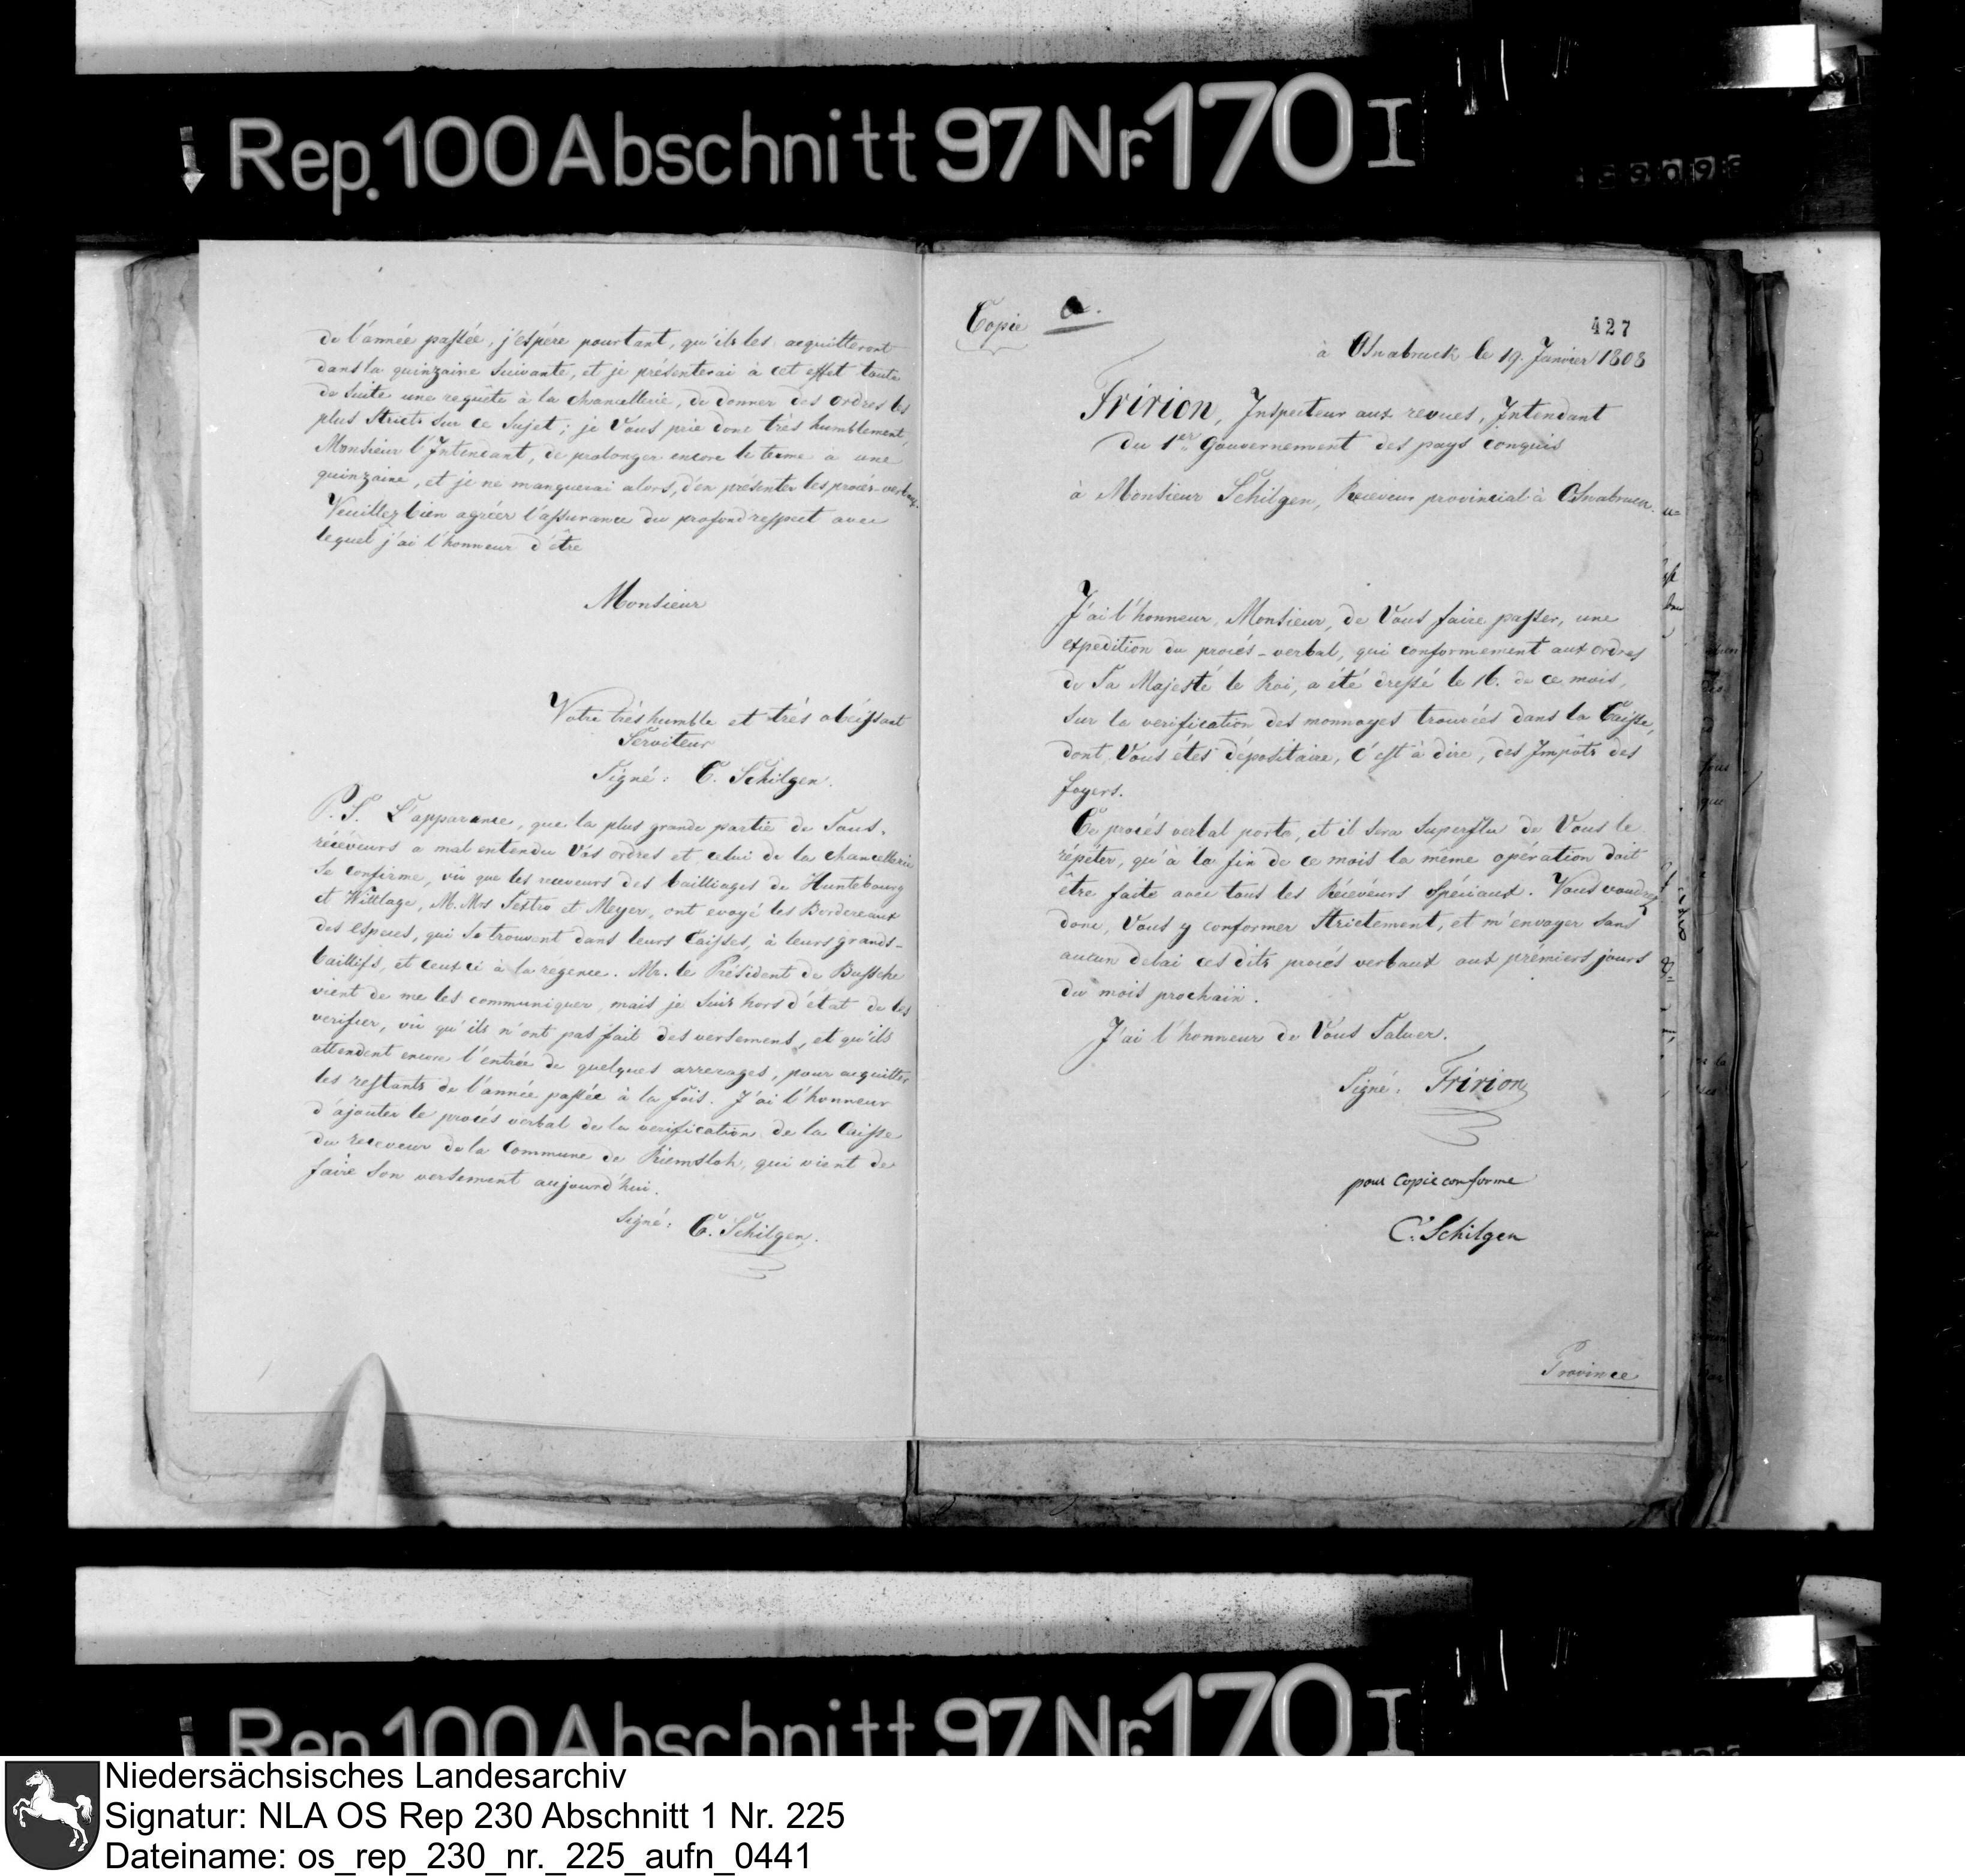 Rep. 100 Abschnitt 97 Nr. 170 I
de l'année passée, j'espére pourtant, qu'ils les acquitteront
dans la quinzaine suivante, et je présenterai à cet effet toute
de suite une requête à la Chancellerie, de donner des ordres les
plus stricts sur ce sujet; je Vous prie donc très humblement,
Monsieur l'Intendant, de prolonger encore le terme a une
quinzaine, et je ne manquerai alors, d'en présenter les procès-verbaux.
Veuillez bien agréer l'assurance du profond respect avec
lequel j'ai l'honneur d'être
Monsieur
Votre très humble et très obéissant
Serviteur
Signé: C. Schilgen.
P. S. L'apparance, que la plus grande partie de Sous-
réceveurs a mal entendu Vos ordres et celui de la Chancellerie
se confirme, vû que les receveurs des bailliages de Huntebourg
et Wittlage, M. Mrs Sextro et Meyer, ont evoyé les Bordereaux
des especes, qui se trouvent dans leurs Caisses, à leurs grands-
baillifs, et ceux ci à la régence. Mr. le Président de Bussche
vient de me les communiquer, mais je suis hors d'état de les
verifier, vû qu'ils n'ont pas fait des versemens, et qu'ils
attendent encore l'entrée de quelques arrerages, pour acquitter
les restants de l'année passée à la fois. J'ai l'honneur
d'ajouter le procés verbal de la verification de la Caisse
du receveur de la Commune de Riemsloh, qui vient de
faire son versement aujourd'hui.
Signé: C. Schilgen.
Copie a.
427
à Osnabruck le 19. Janvier 1808
Fririon, Inspecteur aux revues, Intendant
du 1er Gouvernement des pays conquis
à Monsieur Schilgen, Receveur provincial à Osnabruck.
J'ai l'honneur, Monsieur, de Vous faire passer, une
expedition du procés-verbal, qui conformement aux ordres
de Sa Majesté le Roi, a été dressé le 16. de ce mois,
sur la verification des monnoyes trouvées dans la Caisse,
dont Vous étes dépositaire, c'est à dire, des Impôts des
foyers.
Ce procés verbal porte, et il sera superflu de Vous le
répéter, qu'à la fin de ce mois la même opération doit
être faite avec tous les Réceveurs spéciaux. Vous voudrez
donc, Vous y conformer strictement, et m'envoyer sans
aucun delai ces dits procés verbaux aux prémiers jours
du mois prochain.
J'ai l'honneur de Vous Saluer.
Signé: Fririon
pour copie conforme
C. Schilgen
Province
Rep. 100 Abschnitt 97 Nr. 170 I
Niedersächsisches Landesarchiv
Signatur: NLA OS Rep 230 Abschnitt 1 Nr. 225
Dateiname: os_rep_230_nr._225_aufn_0441